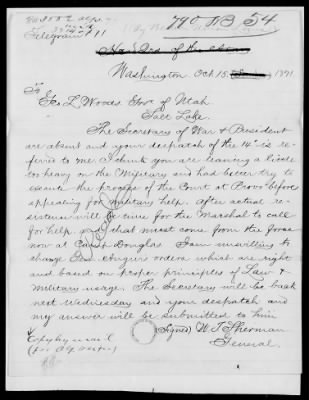 Telegram
Washington. Oct. 15, 1871.
To
Geo. L. Woods Gov. of Utah
Salt Lake.
The Secretary of War & President
are absent and your despatch of the 14th is re-
ferred to me. I think you are leaning a little
too heavy on the Military and had better try to
execute the process of the Court at Provo before
appealing for military help. After actual re-
sistance will be time for the Marshal to call
for help and that must come from the force
now at Camp Douglas I am unwilling to
change Gen Augur's orders which are right
and based on proper principles of Law &
Military usage. The Secretary will be back
next Wednesday and your despatch and
my answer will be submitted to him
(Signed) W. T. Sherman
General.
Copy by mail